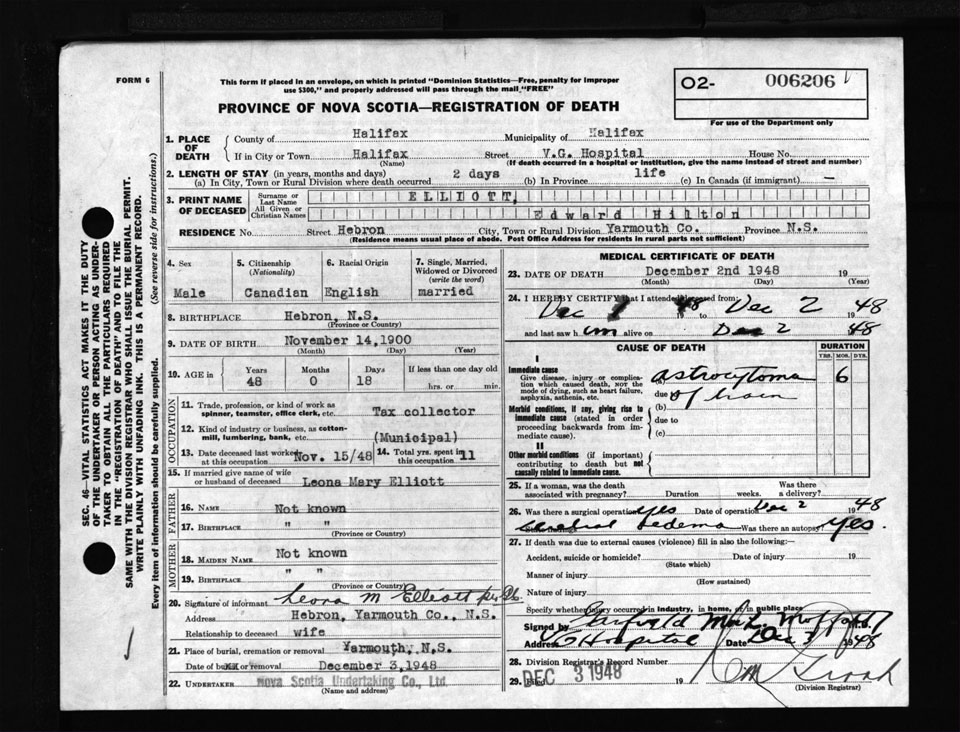 FORM 6
This form if placed in an envelope, on which is printed "Dominion Statistics—Free, penalty for improper
use $300," and properly addressed will pass through the mail "FREE"
PROVINCE OF NOVA SCOTIA—REGISTRATION OF DEATH
O2- 006206
For use of the Department only
SEC. 46—VITAL STATISTICS ACT MAKES IT THE DUTY
OF THE UNDERTAKER OR PERSON ACTING AS UNDER-
TAKER TO OBTAIN ALL THE PARTICULARS REQUIRED
IN THE "REGISTRATION OF DEATH" AND TO FILE THE
SAME WITH THE DIVISION REGISTRAR WHO SHALL ISSUE THE BURIAL PERMIT.
WRITE PLAINLY WITH UNFADING INK. THIS IS A PERMANENT RECORD.
Every item of information should be carefully supplied. (See reverse side for instructions.)
1. PLACE OF DEATH
County of Halifax Municipality of Halifax
If in City or Town Halifax Street V.G. Hospital House No.
(Name) (If death occurred in a hospital or institution, give the name instead of street and number)
2. LENGTH OF STAY (in years, months and days)
(a) In City, Town or Rural Division where death occurred 2 days (b) In Province life (c) In Canada (if immigrant) —
3. PRINT NAME OF DECEASED
Surname or Last Name ELLIOTT,
All Given or Christian Names Edward Hilton
RESIDENCE No. Street Hebron City, Town or Rural Division Yarmouth Co. Province N.S.
(Residence means usual place of abode. Post Office Address for residents in rural parts not sufficient)
4. Sex
Male
5. Citizenship (Nationality)
Canadian
6. Racial Origin
English
7. Single, Married, Widowed or Divorced (write the word)
married
8. BIRTHPLACE Hebron, N.S.
(Province or Country)
9. DATE OF BIRTH November 14,1900
(Month) (Day) (Year)
10. AGE in Years Months Days If less than one day old
48 0 18 hrs. or min.
OCCUPATION
11. Trade, profession, or kind of work as
spinner, teamster, office clerk, etc. Tax collector
12. Kind of industry or business, as cotton-
mill, lumbering, bank, etc. (Municipal)
13. Date deceased last worked at this occupation Nov. 15/48
14. Total yrs. spent in this occupation 11
15. If married give name of wife
or husband of deceased Leona Mary Elliott
FATHER
16. NAME Not known
17. BIRTHPLACE " "
(Province or Country)
MOTHER
18. MAIDEN NAME Not known
19. BIRTHPLACE " "
(Province or Country)
20. Signature of informant Leona M Elliott per
Address Hebron, Yarmouth Co., N.S.
Relationship to deceased wife
21. Place of burial, cremation or removal Yarmouth, N.S.
Date of burial or removal December 3,1948
22. UNDERTAKER Nova Scotia Undertaking Co., Ltd.
(Name and address)
MEDICAL CERTIFICATE OF DEATH
23. DATE OF DEATH December 2nd 1948 19
(Month) (Day) (Year)
24. I HEREBY CERTIFY that I attended deceased from:
Dec 1 48 to Dec 2 1948
and last saw him alive on Dec 2 1948
CAUSE OF DEATH
DURATION
YRS. MOS. DYS.
I
Immediate cause
Give disease, injury or compli-
cation which caused death, NOT the
mode of dying, such as heart failure,
asphyxia, asthenia, etc.
(a) astrocytoma 6
due to of brain
Morbid conditions, if any, giving rise to
immediate cause (stated in order
proceeding backwards from im-
mediate cause).
(b)
due to
(c)
II
Other morbid conditions (if important)
contributing to death but not
causally related to immediate cause.
25. If a woman, was the death
associated with pregnancy? Duration weeks. Was there a delivery?
26. Was there a surgical operation? Yes Date of operation Dec 2 1948
cerebral oedema Was there an autopsy? Yes.
27. If death was due to external causes (violence) fill in also the following:—
Accident, suicide or homicide? Date of injury 19
(State which)
Manner of injury
(How sustained)
Nature of injury
Specify whether injury occurred in industry, in home, or in public place
Signed by
Address Hospital Date Dec 3 1948
28. Division Registrar's Record Number
29. Filed DEC 3 1948 19
(Division Registrar)